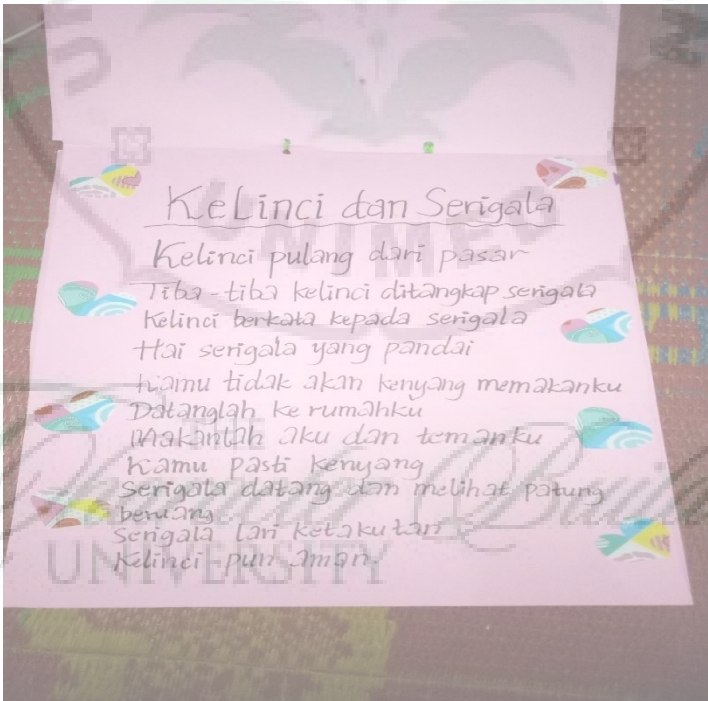 Kelinci dan Serigala
Kelinci pulang dari pasar
Tiba-tiba kelinci ditangkap serigala
Kelinci berkata kepada serigala
Hai serigala yang pandai
Kamu tidak akan kenyang memakanku
Datanglah ke rumahku
Makanlah aku dan temanku
Kamu pasti kenyang
Serigala datang dan melihat patung
beruang
Serigala lari ketakutan
Kelinci pun aman.
UNIMED
THE
UNIVERSITY